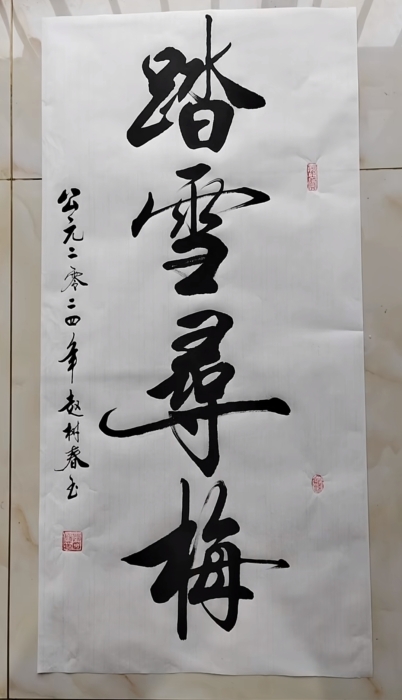 踏雪尋梅
公元二零二四年赵树春书